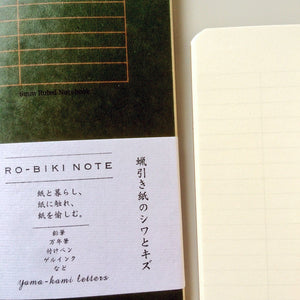 6mm Ruled Notebook
RO-BIKI NOTE
紙と暮らし、
紙に触れ、
紙を愉しむ。
鉛筆
万年筆
付けペン
ゲルインク
など
yama-kami letters
蝋引き紙のシワとキズ